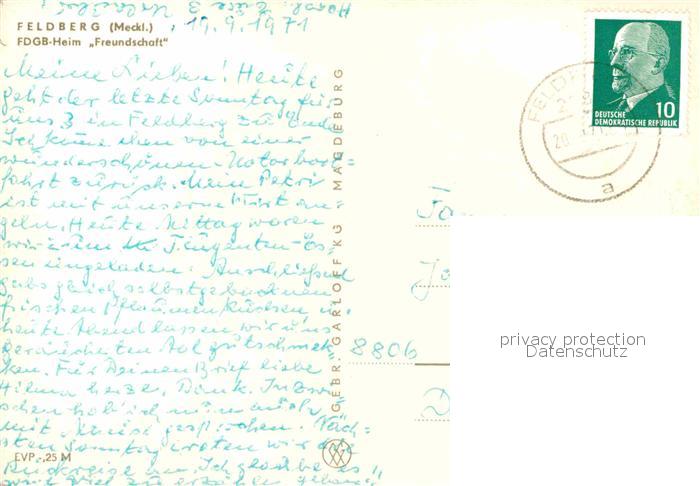 FELDBERG (Meckl.)
FDGB-Heim „Freundschaft"
19.9.1971
Meine Lieben! Heute
geht der letzte Sonntag für
uns 3 in Feldberg zu Ende
Ich komme eben von einer
wunderschönen Motorboot-
fahrt zurück. Mein Petri
ist mit unserem Wirt an-
geln. Heute Mittag waren
wir zum Es-
sen eingeladen. Anschließend
gabs gleich selbstgebackenen
frischen Pflaumenkuchen u.
heute Abend lassen wir uns
geräucherten Aal gutschmek-
ken. Für Deinen Brief liebe
Hilma herzl. Dank. Inzwi-
schen hab ich nun auch
mit gesprochen. Näch-
sten Sonntag treten wir die
Rückreise an. Ich glaube es
wird viel zu erzählen geben
EVP -,25 M
GEBR. GARLOFF KG MAGDEBURG
10
DEUTSCHE
DEMOKRATISCHE REPUBLIK
a
8806
privacy protection
Datenschutz